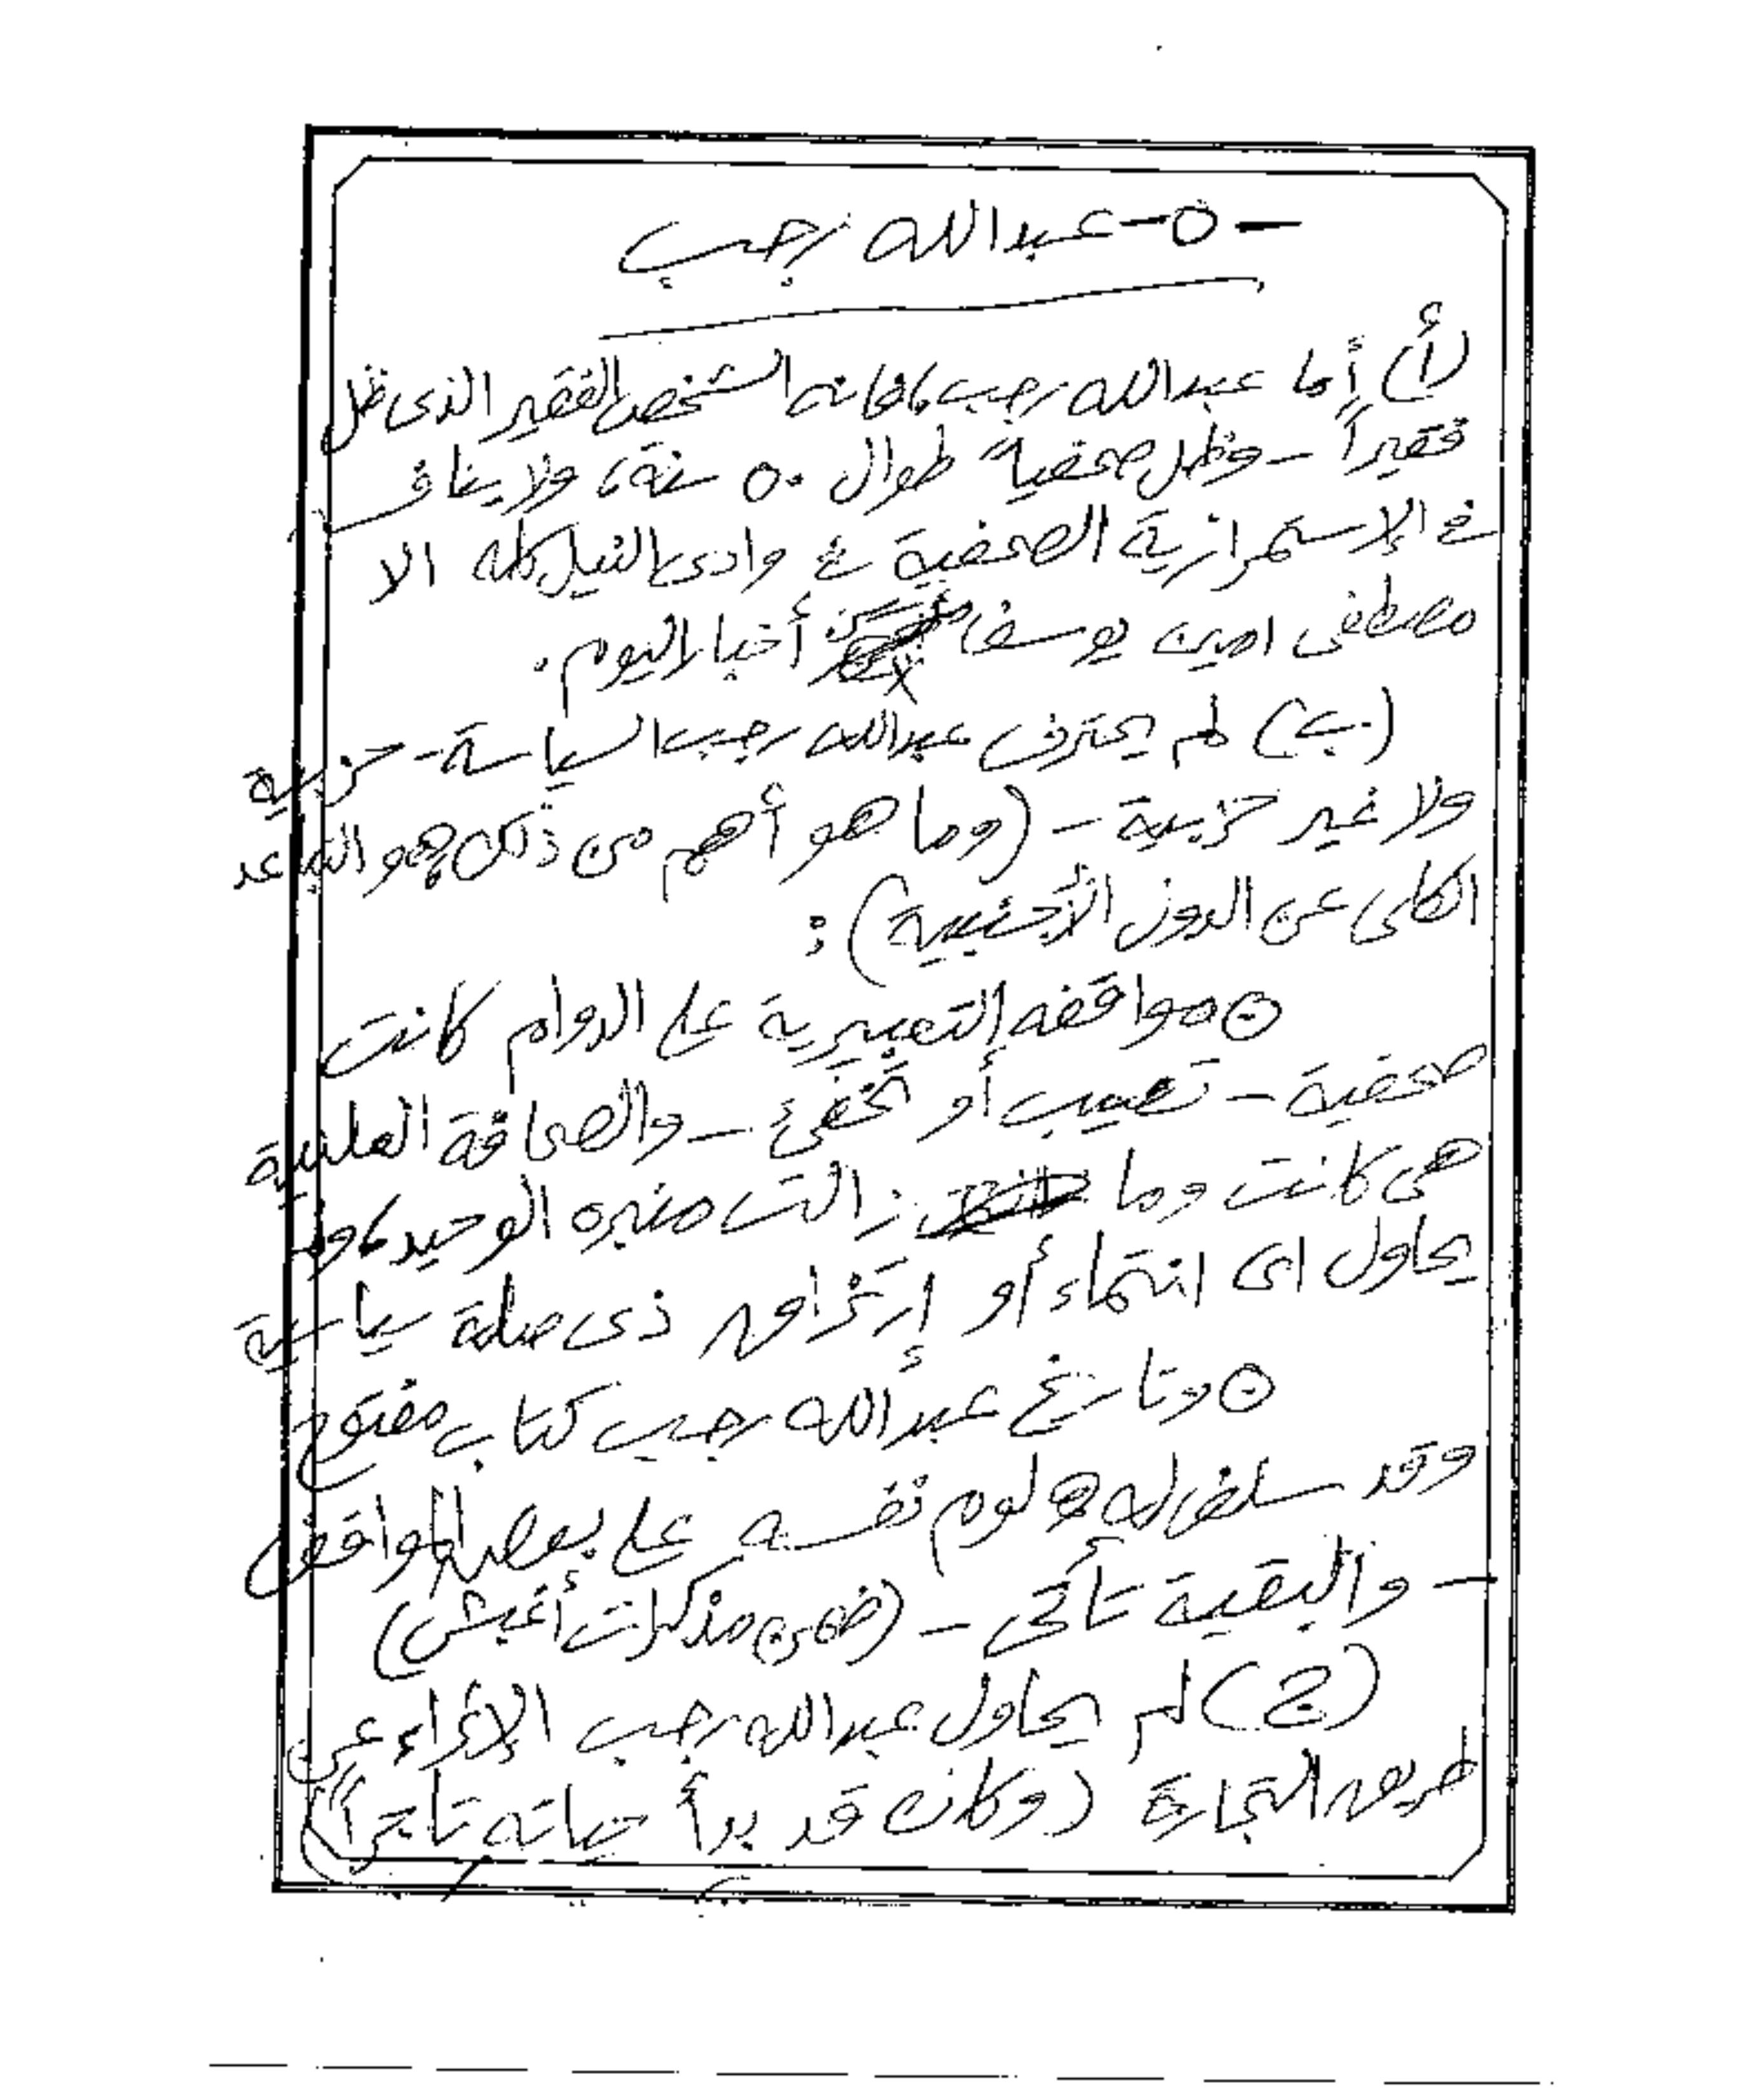 - ٥ - عبدالله رجب
(أ) أما عبدالله رجب، فانه الشخص الفقير الذى ظل
فقيراً - وظل صحفياً طوال ٥٠ سنة، ولا
فى الإستمرارية الصحفية فى وادى النيل كله الا
مصطفى امين يوسف أخبار اليوم.
(ب) لم يحترف عبدالله رجب السياسة - حزبية
ولا غير حزبية - (وما هو أهم من ذلك هو التباعد
الكلى عن الدول الأجنبية):
⊙ مواقفه التعبيرية على الدوام كانت
صحفية - تصيب أو تخفئ - والصحافة العلنية
هى كانت وما زالت منبره الوحيد، ولم
يحاول اى انتماء أو إرتزاق ذى صلة سياسية
⊙ وتاريخ عبدالله رجب كتاب مفتوح
وقد سلف له لوم نفسه على بعض المواقف
- والبقية تأتى - (ضمن مذكرات أغبش)
(ج) لم يحاول عبدالله رجب الإثراء عن
طريق التجارة (وكان قد بدأ حياته تاجراً)